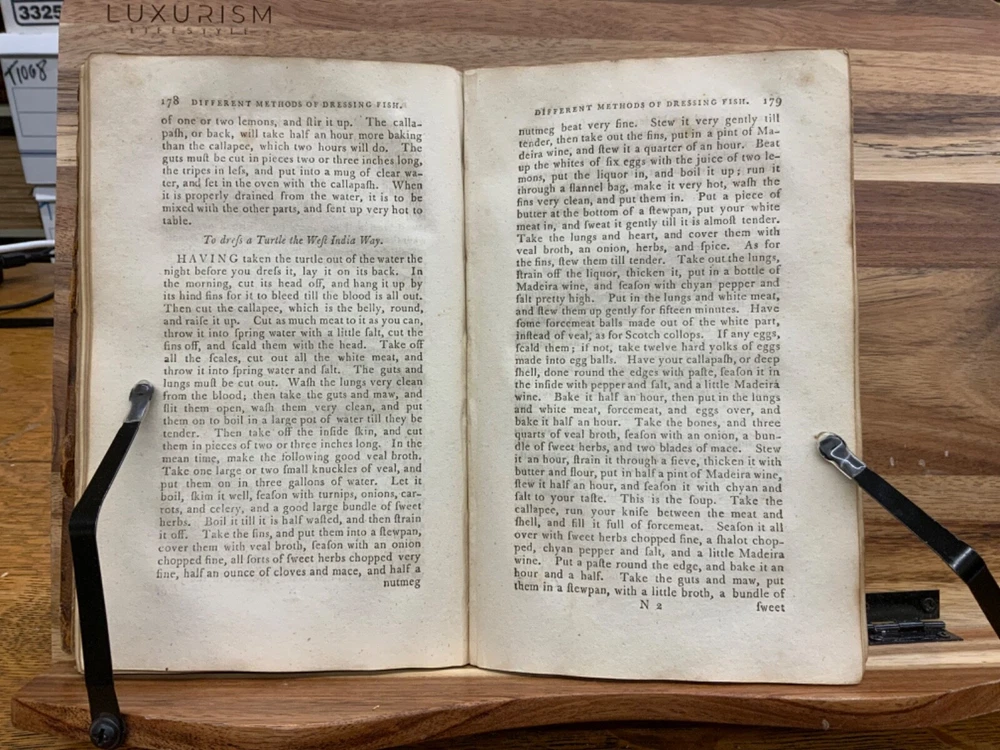 LUXURISM
LIFESTYLE
3325
T1068
178 DIFFERENT METHODS OF DRESSING FISH.
of one or two lemons, and ſtir it up. The calla-
paſh, or back, will take half an hour more baking
than the callapee, which two hours will do. The
guts muſt be cut in pieces two or three inches long,
the tripes in leſs, and put into a mug of clear wa-
ter, and ſet in the oven with the callapaſh. When
it is properly drained from the water, it is to be
mixed with the other parts, and ſent up very hot to
table.
To dreſs a Turtle the Weſt India Way.
HAVING taken the turtle out of the water the
night before you dreſs it, lay it on its back. In
the morning, cut its head off, and hang it up by
its hind fins for it to bleed till the blood is all out.
Then cut the callapee, which is the belly, round,
and raiſe it up. Cut as much meat to it as you can,
throw it into ſpring water with a little ſalt, cut the
fins off, and ſcald them with the head. Take off
all the ſcales, cut out all the white meat, and
throw it into ſpring water and ſalt. The guts and
lungs muſt be cut out. Waſh the lungs very clean
from the blood; then take the guts and maw, and
ſlit them open, waſh them very clean, and put
them on to boil in a large pot of water till they be
tender. Then take off the inſide ſkin, and cut
them in pieces of two or three inches long. In the
mean time, make the following good veal broth.
Take one large or two ſmall knuckles of veal, and
put them on in three gallons of water. Let it
boil, ſkim it well, ſeaſon with turnips, onions, car-
rots, and celery, and a good large bundle of ſweet
herbs. Boil it till it is half waſted, and then ſtrain
it off. Take the fins, and put them into a ſtewpan,
cover them with veal broth, ſeaſon with an onion
chopped fine, all ſorts of ſweet herbs chopped very
fine, half an ounce of cloves and mace, and half a
nutmeg
DIFFERENT METHODS OF DRESSING FISH. 179
nutmeg beat very fine. Stew it very gently till
tender, then take out the fins, put in a pint of Ma-
deira wine, and ſtew it a quarter of an hour. Beat
up the whites of ſix eggs with the juice of two le-
mons, put the liquor in, and boil it up; run it
through a flannel bag, make it very hot, waſh the
fins very clean, and put them in. Put a piece of
butter at the bottom of a ſtewpan, put your white
meat in, and ſweat it gently till it is almoſt tender.
Take the lungs and heart, and cover them with
veal broth, an onion, herbs, and ſpice. As for
the fins, ſtew them till tender. Take out the lungs,
ſtrain off the liquor, thicken it, put in a bottle of
Madeira wine, and ſeaſon with chyan pepper and
ſalt pretty high. Put in the lungs and white meat,
and ſtew them up gently for fifteen minutes. Have
ſome forcemeat balls made out of the white part,
inſtead of veal, as for Scotch collops. If any eggs,
ſcald them; if not, take twelve hard yolks of eggs
made into egg balls. Have your callapaſh, or deep
ſhell, done round the edges with paſte, ſeaſon it in
the inſide with pepper and ſalt, and a little Madeira
wine. Bake it half an hour, then put in the lungs
and white meat, forcemeat, and eggs over, and
bake it half an hour. Take the bones, and three
quarts of veal broth, ſeaſon with an onion, a bun-
dle of ſweet herbs, and two blades of mace. Stew
it an hour, ſtrain it through a ſieve, thicken it with
butter and flour, put in half a pint of Madeira wine,
ſtew it half an hour, and ſeaſon it with chyan and
ſalt to your taſte. This is the ſoup. Take the
callapee, run your knife between the meat and
ſhell, and fill it full of forcemeat. Seaſon it all
over with ſweet herbs chopped fine, a ſhalot chop-
ped, chyan pepper and ſalt, and a little Madeira
wine. Put a paſte round the edge, and bake it an
hour and a half. Take the guts and maw, put
them in a ſtewpan, with a little broth, a bundle of
N 2 ſweet